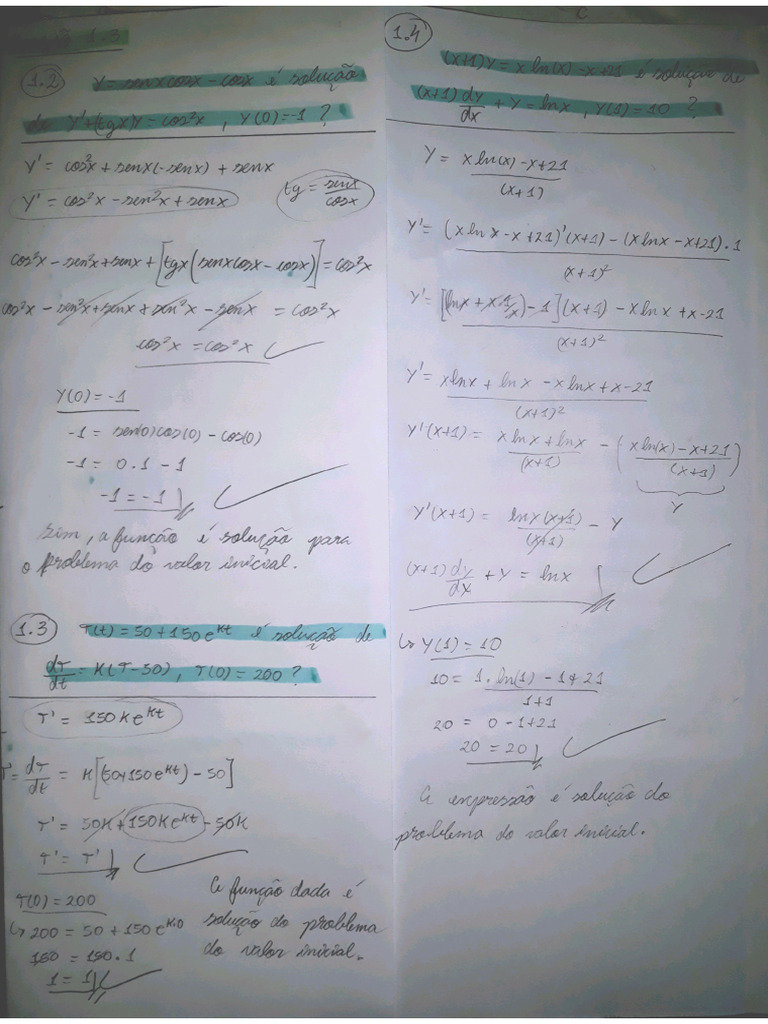 1.3
1.2 Y = senxcosx - cosx é solução
de Y' + (tgx)Y = cos²x , Y(0)=-1 ?
Y' = cos²x + senx(-senx) + senx
Y' = cos²x - sen²x + senx
tg = senx/cosx
cos²x - sen²x + senx + [tgx(senxcosx - cosx)] = cos²x
cos²x - sen²x + senx + sen²x - senx = cos²x
cos²x = cos²x
Y(0) = -1
-1 = sen(0)cos(0) - cos(0)
-1 = 0.1 - 1
-1 = -1
Sim, a função é solução para
o problema do valor inicial.
1.3 T(t) = 50 + 150e^kt é solução de
dT/dt = K(T-50), T(0) = 200 ?
T' = 150Ke^kt
T' = dT/dt = K[(50+150e^kt) - 50]
T' = 50K + 150Ke^kt - 50K
T' = T'
T(0) = 200
↳ 200 = 50 + 150e^K.0
150 = 150.1
1 = 1
A função dada é
solução do problema
do valor inicial.
1.4
(x+1)Y = x ln(x) - x + 21 é solução de
(x+1) dy/dx + Y = lnx, Y(1) = 10 ?
Y = x ln(x) - x + 21 / (x+1)
Y' = (x ln x - x + 21)'(x+1) - (x lnx - x + 21).1 / (x+1)²
Y' = [(lnx + x.1/x) - 1](x+1) - x lnx + x - 21 / (x+1)²
Y' = x lnx + lnx - x lnx + x - 21 / (x+1)²
Y'(x+1) = x lnx + lnx / (x+1) - (x ln(x) - x + 21 / (x+1))
Y
Y'(x+1) = lnx(x+1) / (x+1) - Y
(x+1) dy/dx + Y = lnx
↳ Y(1) = 10
10 = 1.ln(1) - 1 + 21 / 1+1
20 = 0 - 1 + 21
20 = 20
A expressão é solução do
problema do valor inicial.